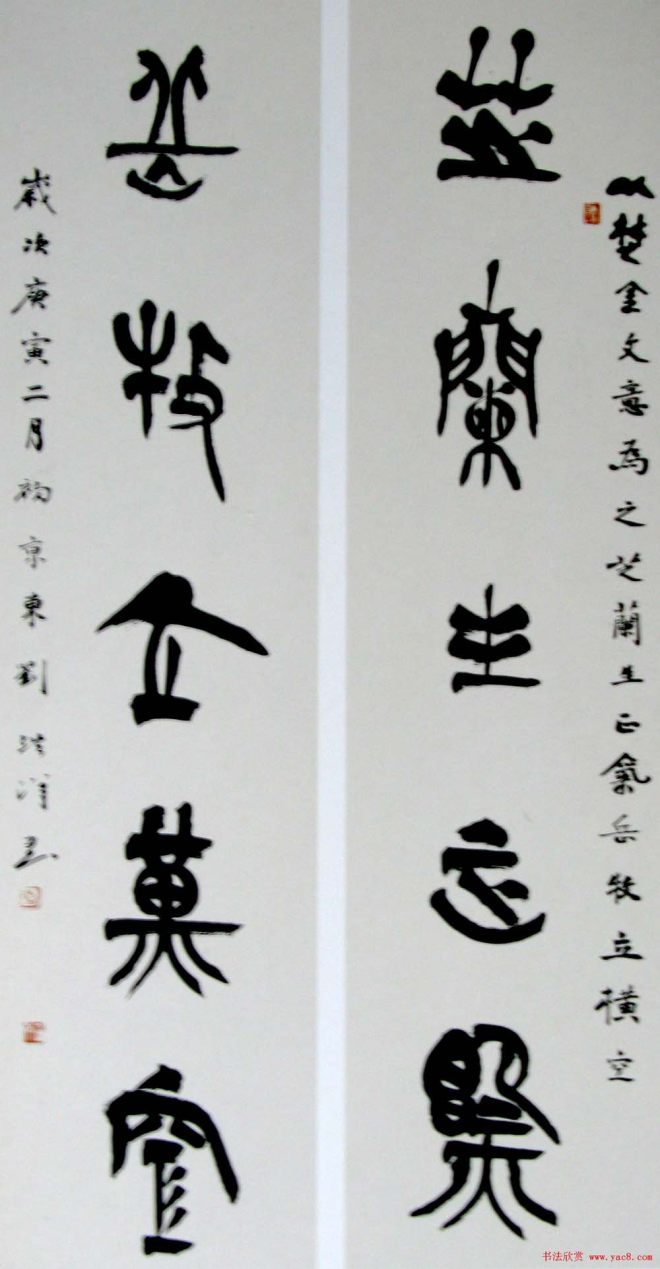 以楚金文意为之芝蘭生正氣岳牧立横空
芝蘭生正氣
岳牧立横空
歲次庚寅二月 京東劉
书法欣赏 www.yac8.com